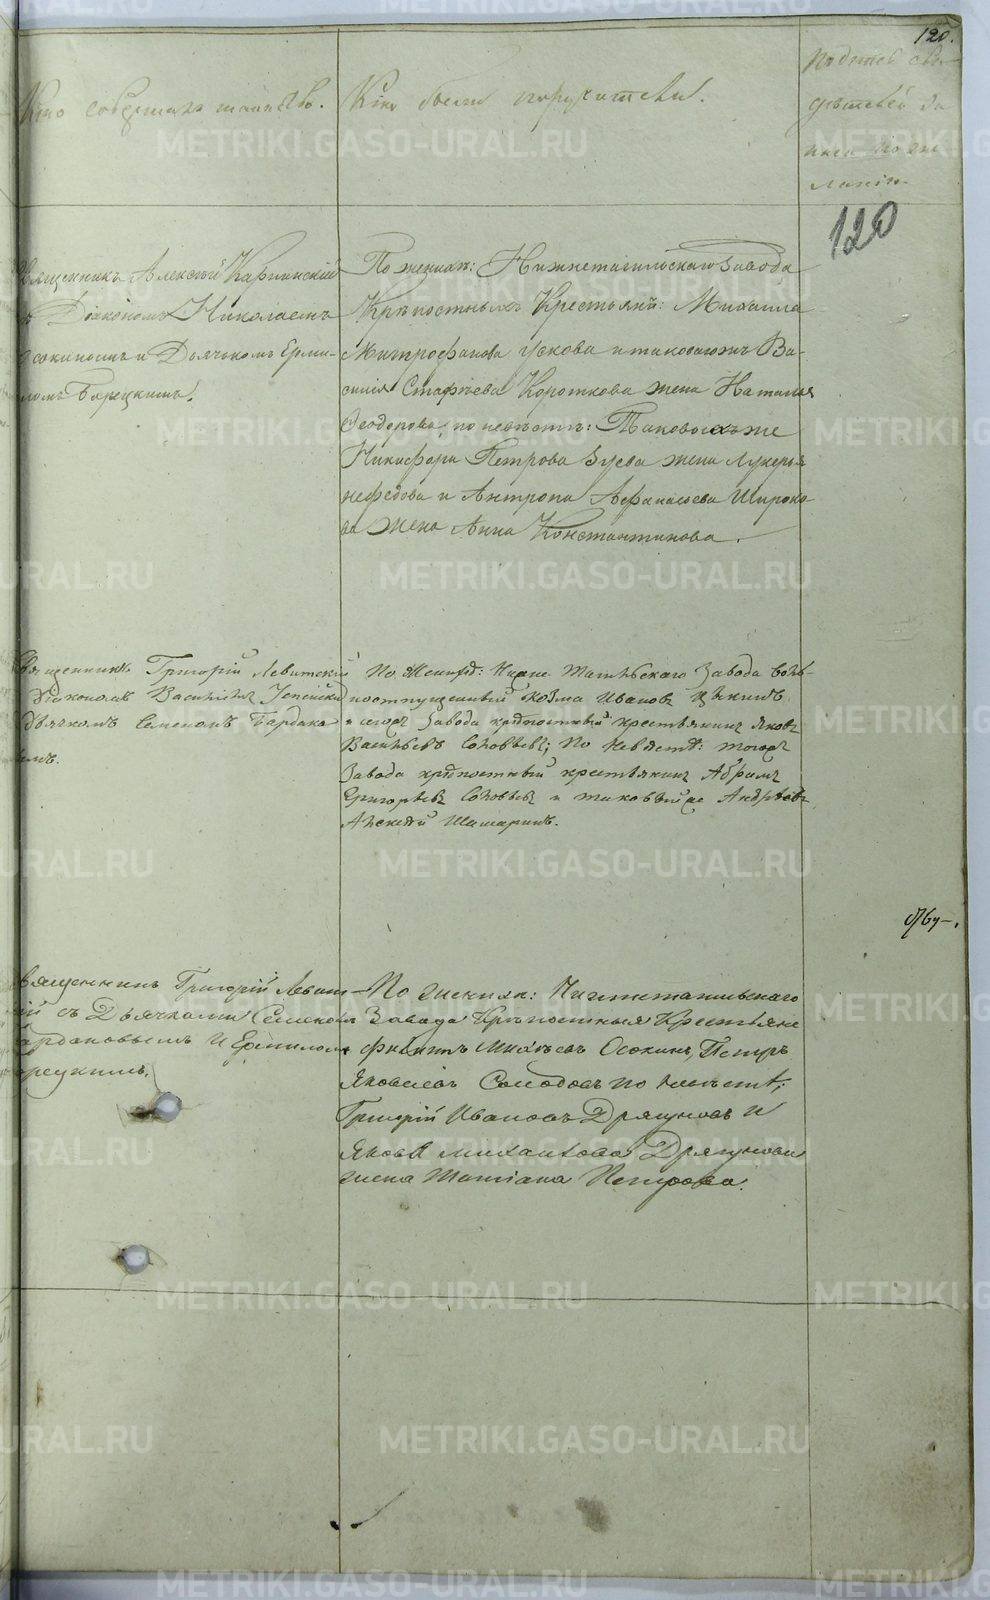 120.
Кто совершалъ таинство.
Кто были поручители.
Подпись сви-
дѣтелей за
писи по же
ланію.
120
Священникъ Алексѣй Карпинскій
съ Діакономъ Николаемъ
и Дьячкомъ Ерми-
ломъ
По женихѣ: Нижнетагильскаго Завода
Крѣпостныхъ Крестьянъ: Михаила
Митрофанова Ускова и таковагожъ Ва-
силія Стафѣева Короткова жена Наталья
Ѳеодорова, по невѣстѣ: Таковыхъ же
Никифора Петрова Зуева жена Лукерья
Нефедова и Антропа Афанасьева Широко-
ва жена Анна Константинова.
Священникъ Григорій Левитскій
Діакономъ Василіемъ
дьячкомъ Семеномъ Бардако
вымъ.
По Женихѣ: Нижне Тагильскаго Завода воль-
ноотпущенный Козма Ивановъ
и тогожъ Завода крѣпостный крестьянинъ Яковъ
Васильевъ Соловьевъ; По Невѣстѣ: тогожъ
Завода крѣпостный крестьянинъ Абрамъ
Григорьевъ Соловьевъ и таковый же Андрѣевъ
Алексѣй Шамаринъ.
Священникъ Григорій Левит-
ій съ Дьячками Семеномъ
Бардаковымъ и Ермиломъ
По женихѣ: Нижнетагильскаго
Завода Крѣпостныя Крестьяне
Осокинъ, Петръ
Яковлевъ Солодовъ по невѣстѣ;
Григорій Ивановъ Драгуновъ и
Якова Михайлова Драгунова
жена Татіана Петрова.
METRIKI.GASO-URAL.RU